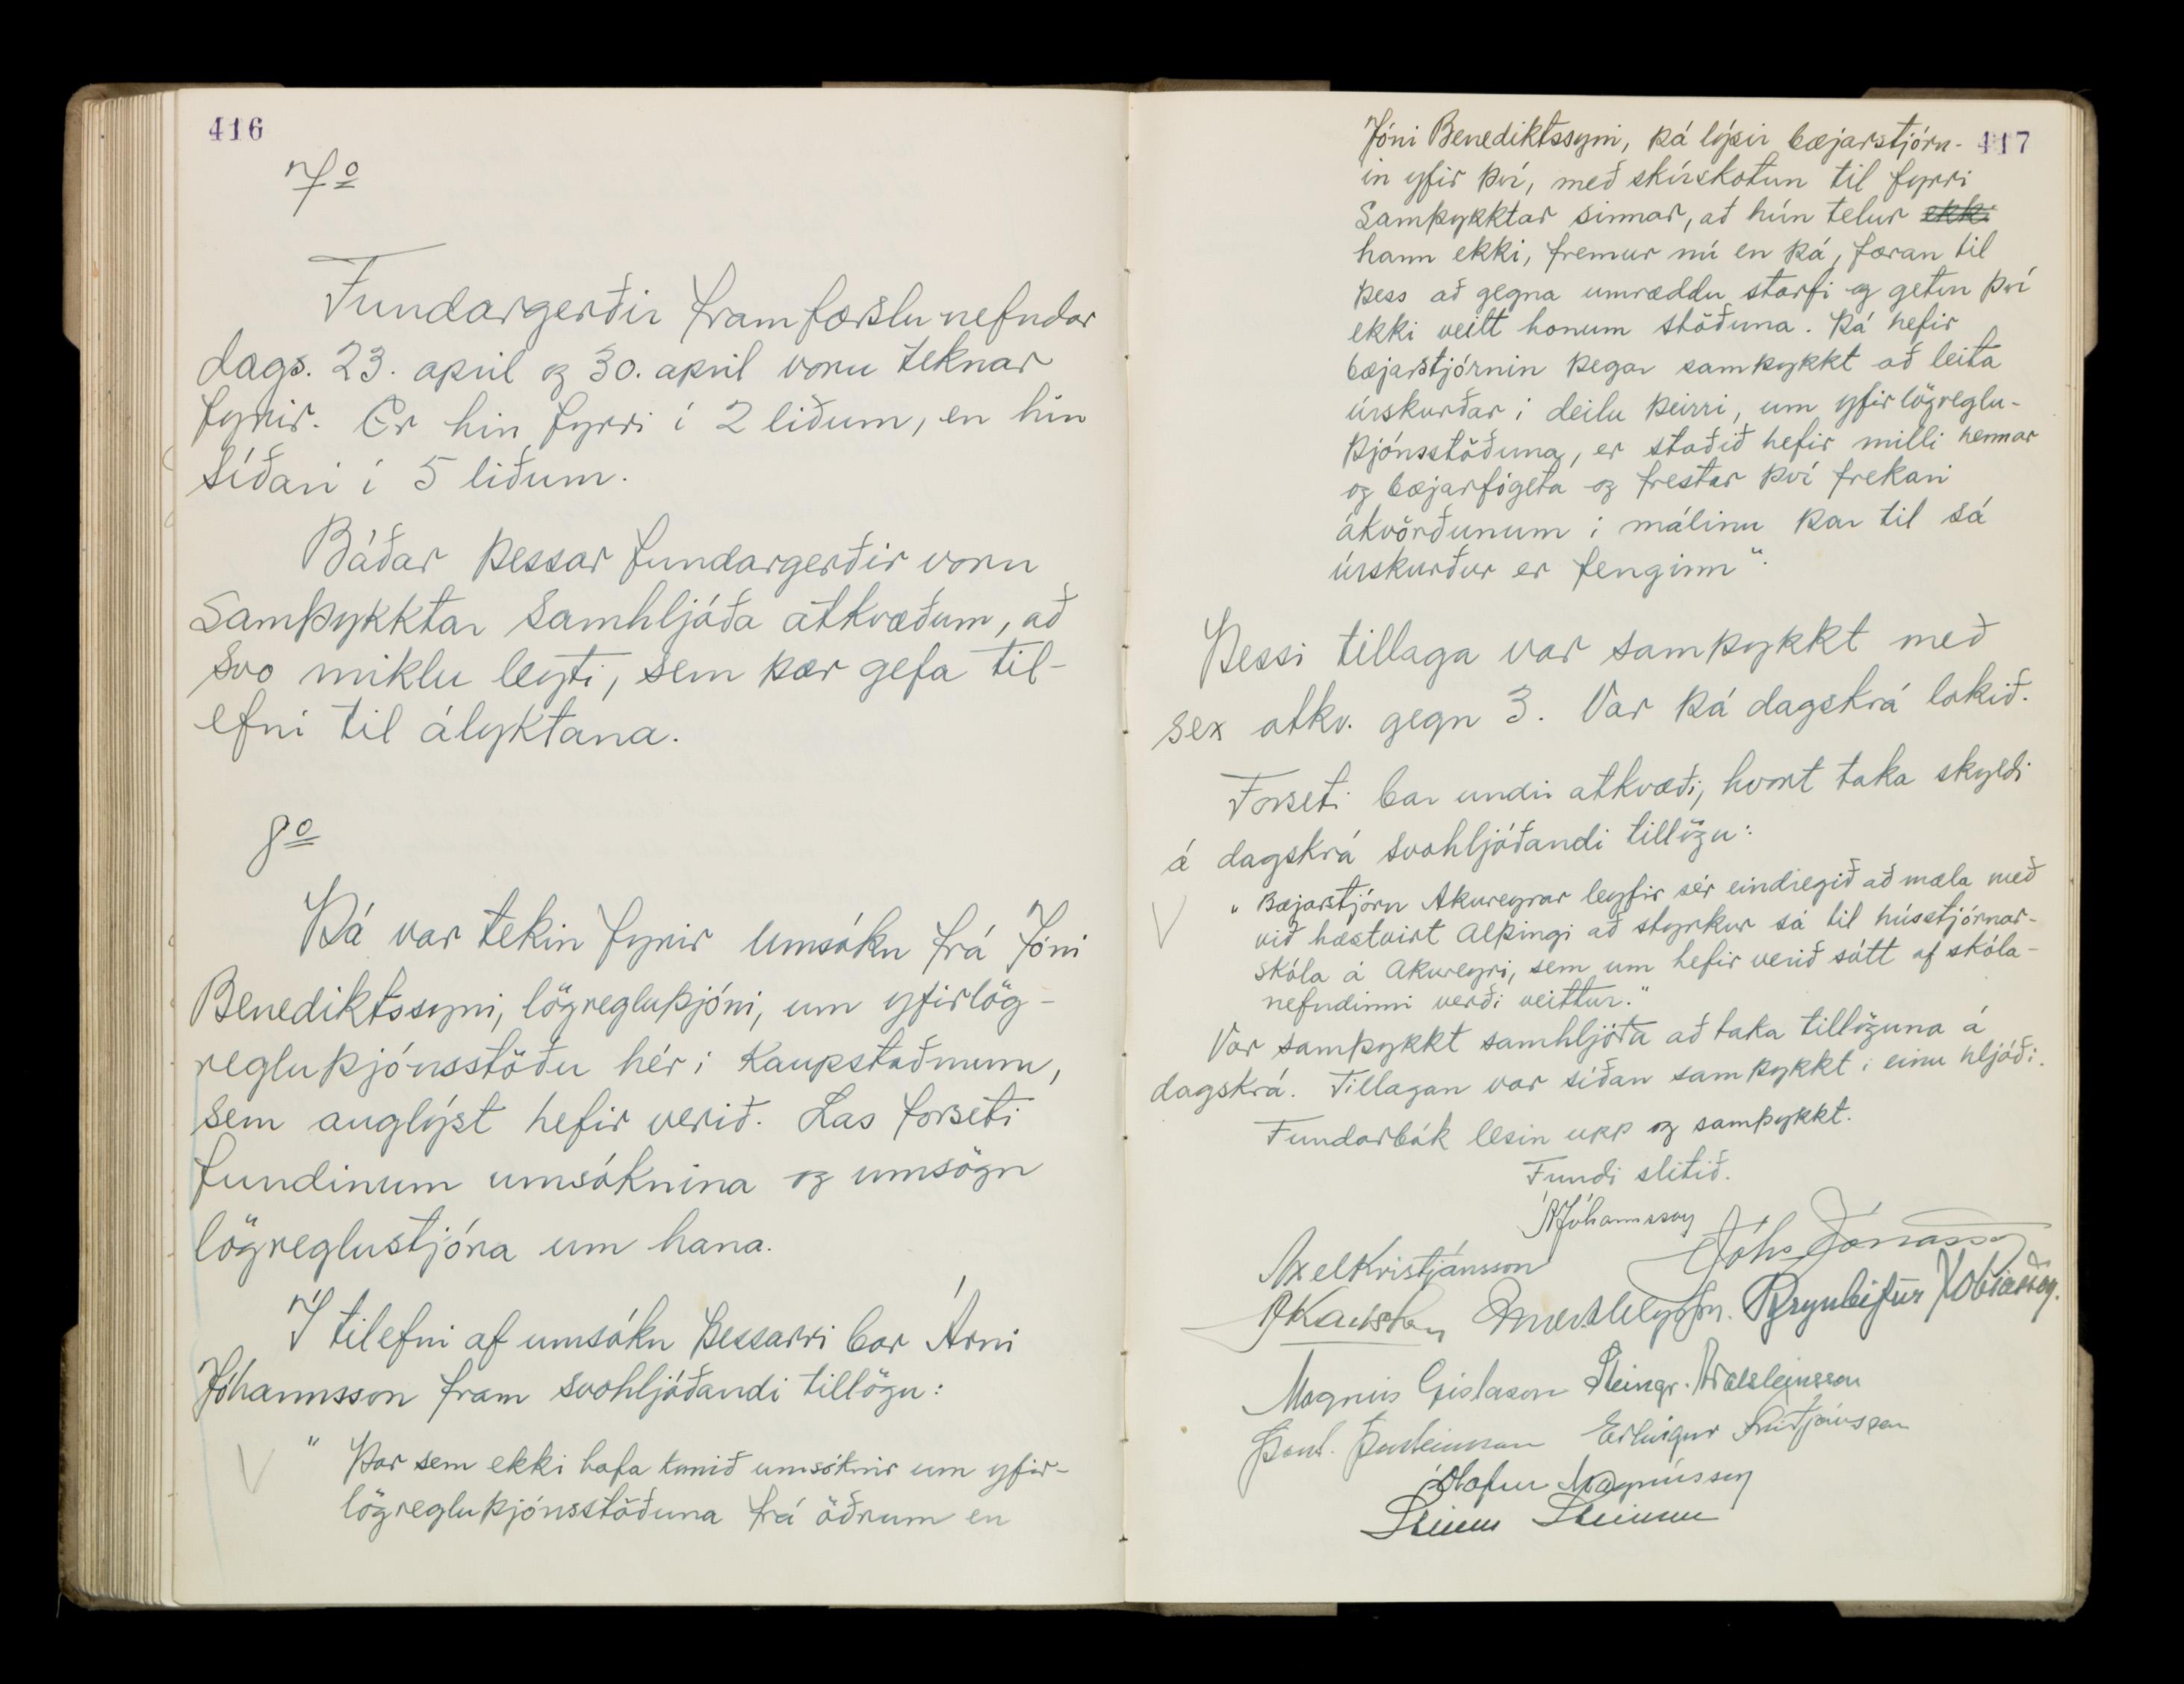 416
7º
Fundargerðir framfærslunefndar
dags. 23. apríl og 30. apríl voru teknar
fyrir. Er hin fyrri í 2 liðum, en hin
síðari í 5 liðum.
Báðar þessar fundargerðir voru
Samþykktar samhljóða atkvæðum, að
svo miklu leyti, sem þær gefa til-
efni til ályktana.
8º
Þá var tekin fyrir umsókn frá Jóni
Benediktssyni, lögregluþjóni, um yfirlög-
regluþjónsstöðu hér í Kaupstaðnum,
sem auglýst hefir verið. Las forseti
fundinum umsóknina og umsögn
lögreglustjóra um hana.
Í tilefni af umsókn þessarri bar Árni
Jóhannsson fram svohljóðandi tillögu:
" Þar sem ekki hafa komið umsóknir um yfir-
lögregluþjónsstöðuna frá öðrum en
417
Jóni Benediktssyni, þá lýsir bæjarstjórn-
in yfir því, með skírskotun til fyrri
Samþykktar sinnar, að hún telur ekki
hann ekki, fremur nú en þá, færan til
þess að gegna umræddu starfi og getur því
ekki veitt honum stöðuna. Þá hefir
bæjarstjórnin þegar samþykkt að leita
úrskurðar í deilu þeirri, um yfirlögreglu-
þjónsstöðuna, er staðið hefir milli hennar
og bæjarfógeta og frestar því frekari
ákvörðunum í málinu þar til sá
úrskurður er fenginn".
Þessi tillaga var samþykkt með
sex atkv. gegn 3. Var þá dagskrá lokið.
Forseti bar undir atkvæði, hvort taka skyldi
á dagskrá svohljóðandi tillögu:
" Bæjarstjórn Akureyrar leyfir sér eindregið að mæla með
við hæstvirt Alþingi að styrkur sá til hússtjórnar-
skóla á Akureyri, sem um hefir verið sótt af skóla-
nefndinni verði veittur."
Var samþykkt samhljóða að taka tillöguna á
dagskrá. Tillagan var síðan samþykkt í einu hljóði.
Fundarbók lesin upp og samþykkt.
Fundi slitið.
ÁJóhannsson
Axel Kristjánsson Jóhs Jónasson
Brynleifur Tobiasson.
Magnús Gíslason Steingr. Aðalsteinsson
Þorst. Þorsteinsson Erlingur Friðjónsson
Ólafur Magnússon
Steinn Steinsen